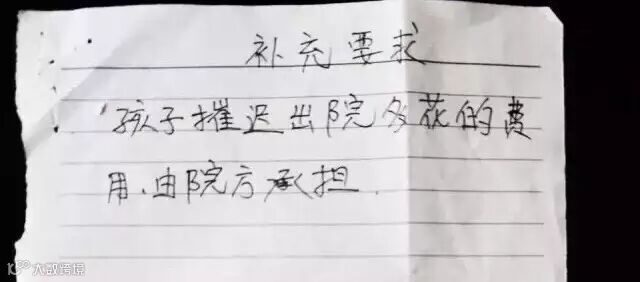 补充要求
孩子摧迟出院多花的费
用.由院方承担.
大数跨境